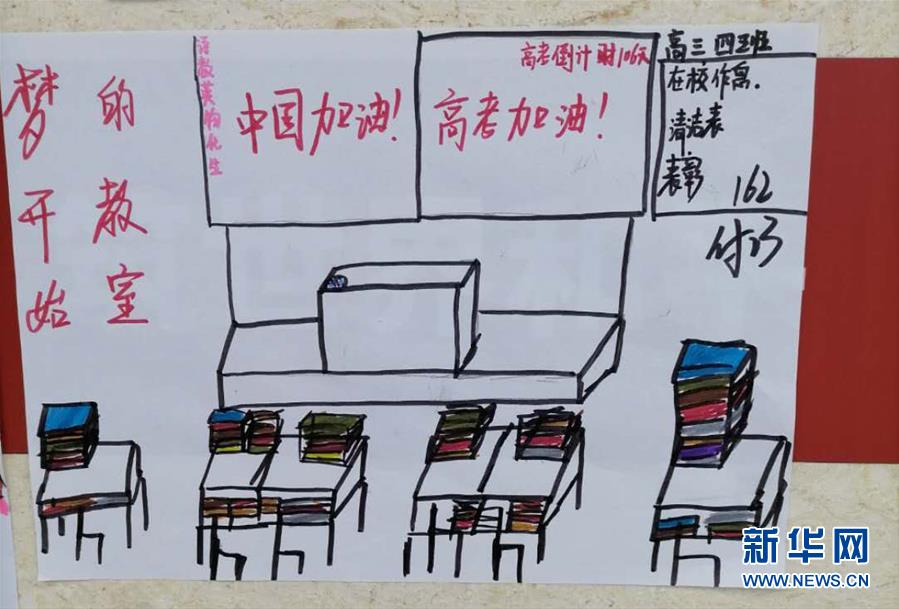 梦开始
的教室
语数英物化生
中国加油!
高考倒计时106天
高考加油!
高三
清洁表
表彰
162
新华网
WWW.NEWS.CN